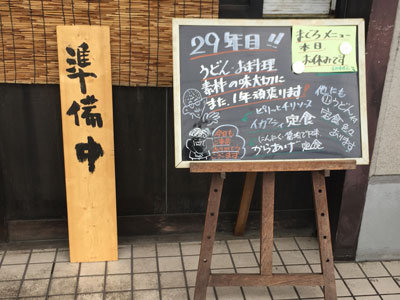 準備中
29年目!!
うどん・お料理
素材の味大切に
また、1年頑張ります!
ピリッとチリソース
イカフライ定食
にんにく・醤油で下味
からあげ定食
他にも
うどんや
定食色々
あります
まぐろメニュー
本日
お休みです